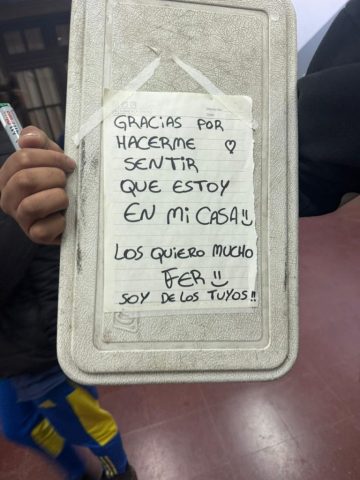 GRACIAS POR
HACERME ♡
SENTIR
QUE ESTOY
EN MI CASA!!
LOS QUIERO MUCHO
FER!!
SOY DE LOS TUYOS!!